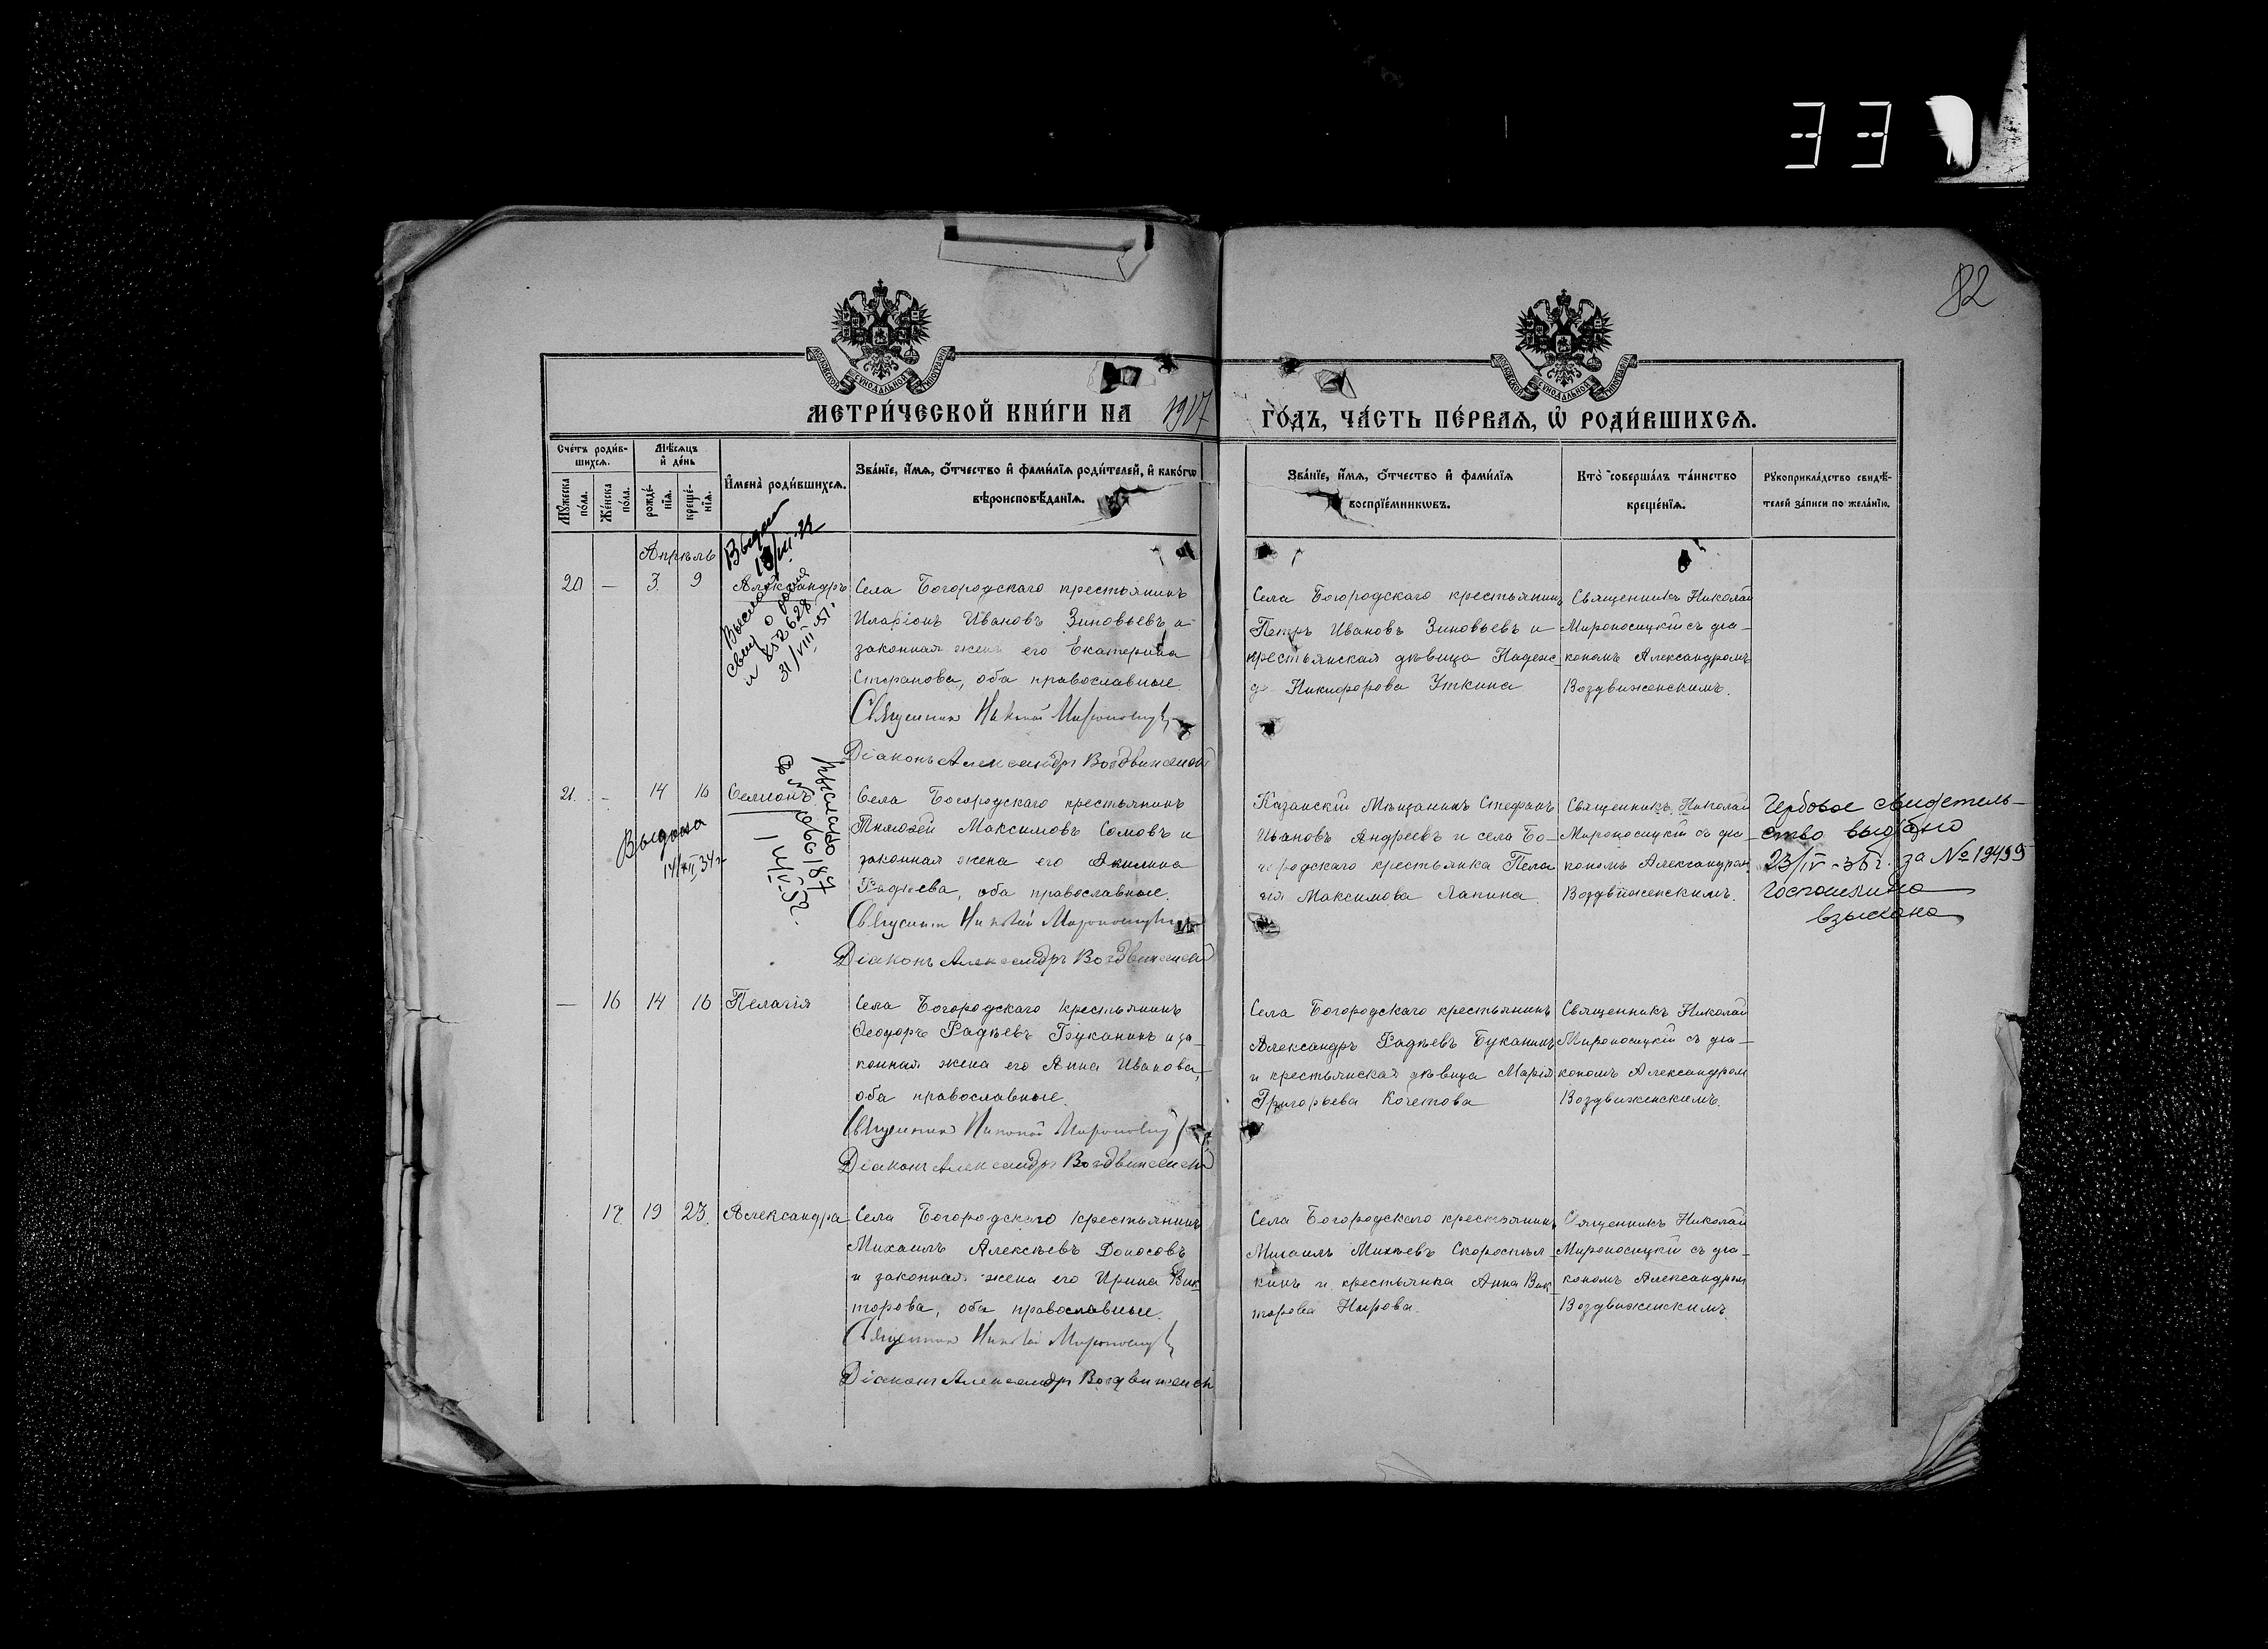 33
82
МЕТРИ́ЧЕСКОЙ КНИ́ГИ НА 1917 ГО́ДЪ, ЧА́СТЬ ПЕ́РВАЯ, Ѡ҆ РОДИ́ВШИХСЯ.
Сче́тъ роди́в-
шихся.
Мѣ́сяцъ
и҆ де́нь
Мꙋ́жеска по́ла.
Же́нска по́ла.
рожде́-
нїя.
креще́-
нїя.
И҆мена̀ роди́вшихся.
Зва́нїе, и҆́мя, ѻ҆́тчество и҆ фами́лїя роди́телей, и҆ како́гѡ
вѣроисповѣ́данїя.
Зва́нїе, и҆́мя, ѻ҆́тчество и҆ фами́лїя
воспрїе́мникѡвъ.
Кто̀ соверша́лъ та́инство
креще́нїя.
Рꙋкоприкла́дство свидѣ́-
телей за́писи по жела́нїю.
Апрѣль
20 — 3 9 Александръ
Села Богородскаго крестьянинъ
Иларіонъ Ивановъ Зиновьевъ и
законная жена его Екатерина
Стефанова, оба православные.
Священник Николай Мироносицкій
Діаконъ Александръ Воздвиженскій
Села Богородскаго крестьянинъ
Петръ Ивановъ Зиновьевъ и
крестьянская дѣвица Надеж
да Никифорова Уткина
Священникъ Николай
Мироносицкій съ діа-
кономъ Александромъ
Воздвиженскимъ.
Выслано
свид о рожд
№ 852628
31/VIII 51
21. — 14 16 Семіонъ
Выдана
14/XII 34 г
Выслано
1/VI-52.
Села Богородскаго крестьянинъ
Тимоѳей Максимовъ Сомовъ и
законная жена его Акилина
Фадѣева, оба православные.
Священник Николай Мироносицкій
Діаконъ Александръ Воздвиженскій
Казанскій Мѣщанинъ Стефанъ
Ивановъ Андреевъ и села Бо-
городскаго крестьянка Пела
гія Максимова Лапина.
Священникъ Николай
Мироносицкій съ діа-
кономъ Александром
Воздвиженскимъ.
Гербовое свидетель-
ство выдано
23/IV-35 г. за № 19499
Госпошлина
взыскана
— 16 14 16 Пелагія
Села Богородскаго крестьянинъ
Ѳеодоръ Фадѣевъ Буканинъ и за-
конная жена его Анна Иванова,
оба православные.
Священник Николай Мироносицкій
Діаконъ Александръ Воздвиженскій
Села Богородскаго крестьянинъ
Александръ Фадѣевъ Буканинъ
и крестьянская дѣвица Марія
Григорьева Кочетова
Священникъ Николай
Мироносицкій съ діа-
кономъ Александром
Воздвиженскимъ.
17 19 23. Александра
Села Богородскаго крестьянинъ
Михаилъ Алексѣевъ Доносовъ
и законная жена его Ирина Вик
торова, оба православные.
Священник Николай Мироносицкій
Діаконъ Александръ Воздвиженскій
Села Богородскаго крестьянинъ
Михаилъ Михѣевъ Скороспѣл-
кинъ и крестьянка Анна Вик
торова Нырова.
Священникъ Николай
Мироносицкій съ діа-
кономъ Александром
Воздвиженскимъ.